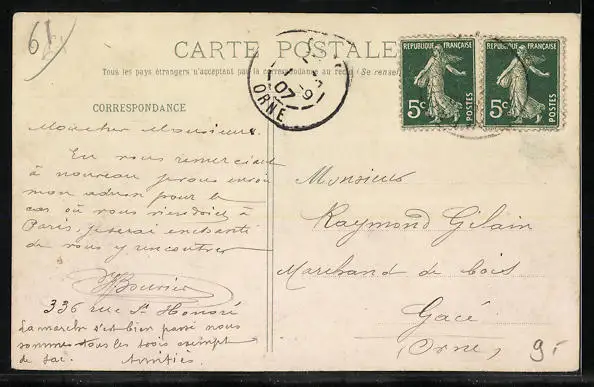 61
CARTE POSTALE
Tous les pays étrangers n'acceptent pas la correspondance au recto (Se renseigner
CORRESPONDANCE
RÉPUBLIQUE FRANÇAISE
5c POSTES
RÉPUBLIQUE FRANÇAISE
5c POSTES
07
ORNE
Mon cher Monsieur.
En vous remerciant
à nouveau je vous envoie
mon adresse pour le
cas où vous viendriez à
Paris, je serai enchanté
de vous y rencontrer
336 rue St Honoré
La marche s'est bien passé nous
sommes tous les trois exempt
de sac. Amitiés
Monsieur
Raymond Gilain
Marchand de bois
Gacé
(Orne)
9.-